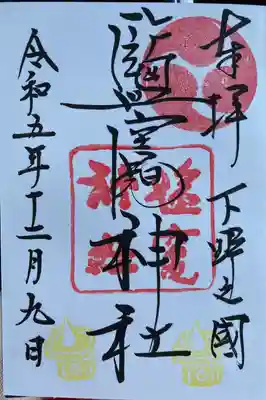 奉拝 下野之國
鹽竈神社
令和五年十二月九日